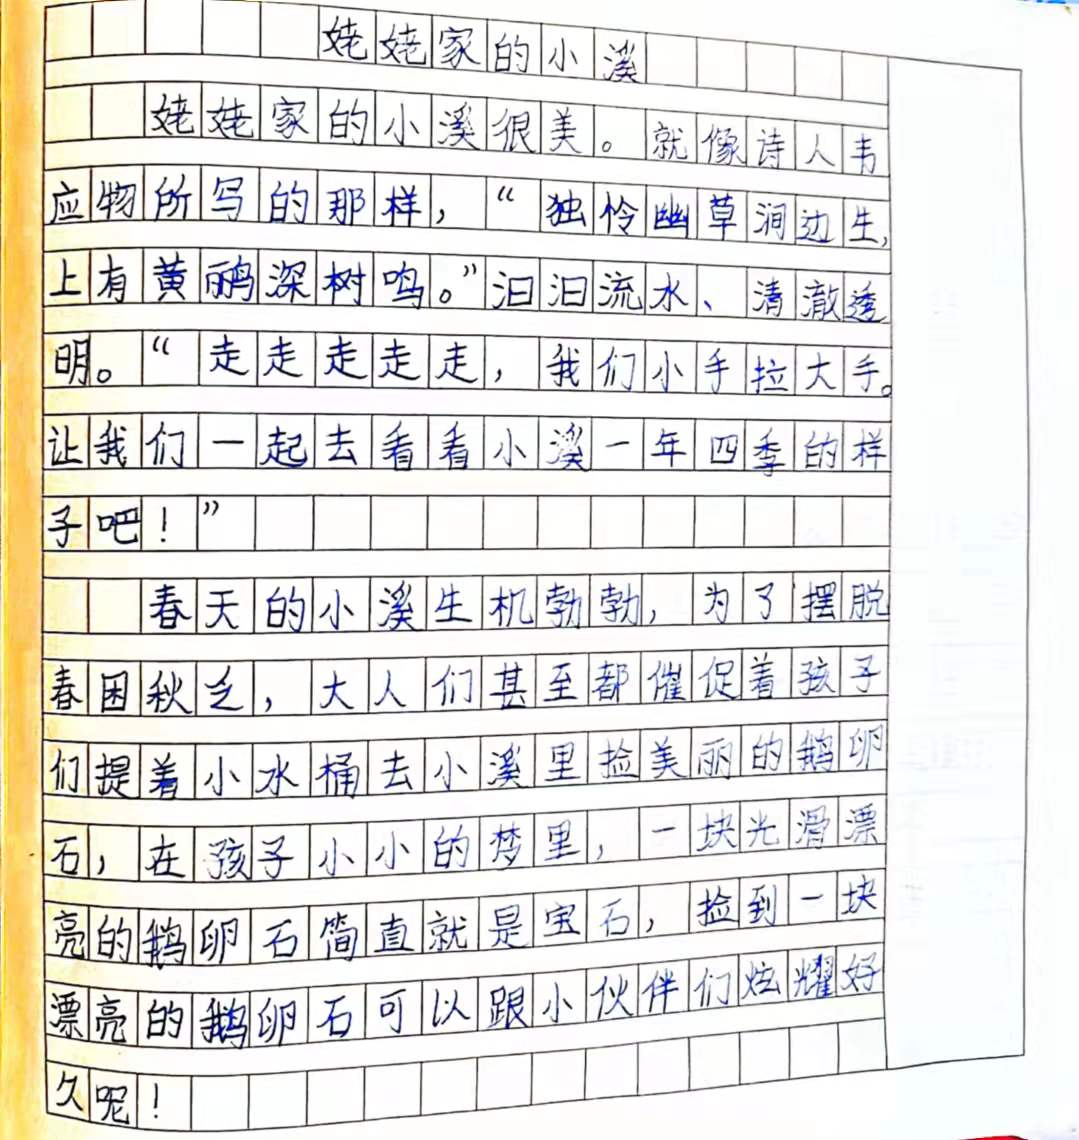 姥姥家的小溪
姥姥家的小溪很美。就像诗人韦
应物所写的那样，“独怜幽草涧边生，
上有黄鹂深树鸣。”汩汩流水、清澈透
明。“走走走走走，我们小手拉大手。
让我们一起去看看小溪一年四季的样
子吧！”
春天的小溪生机勃勃，为了摆脱
春困秋乏，大人们甚至都催促着孩子
们提着小水桶去小溪里捡美丽的鹅卵
石，在孩子小小的梦里，一块光滑漂
亮的鹅卵石简直就是宝石，捡到一块
漂亮的鹅卵石可以跟小伙伴们炫耀好
久呢！